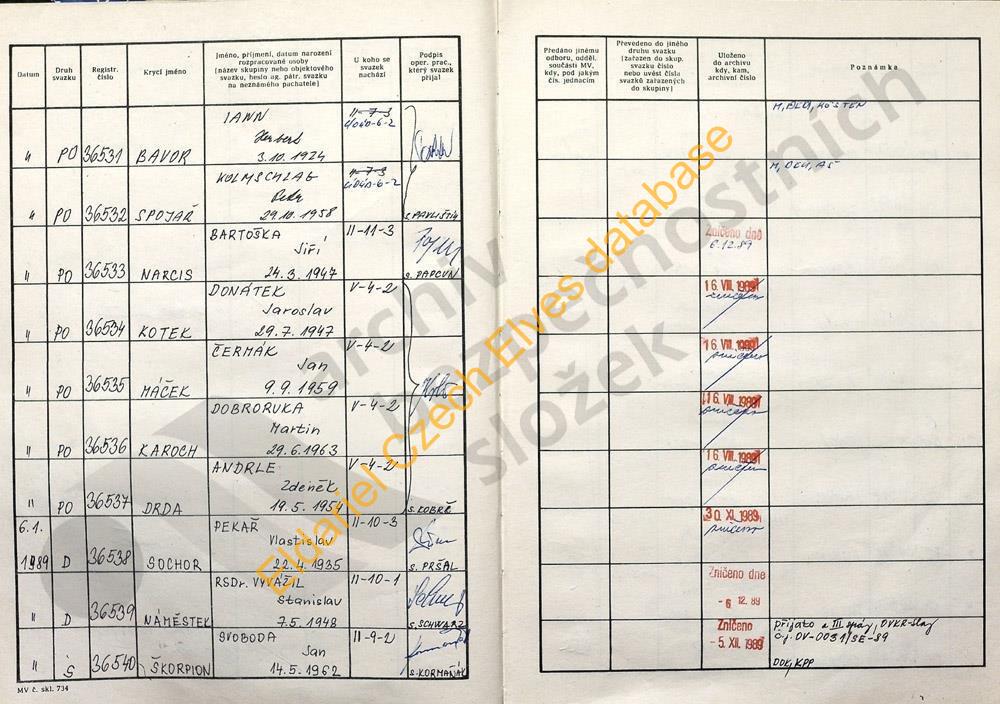 Datum
Druh svazku
Registr. číslo
Krycí jméno
Jméno, příjmení, datum narození
rozpracované osoby
(název skupiny nebo objektového
svazku, heslo ag. pátr. svazku
na neznámého pachatele)
U koho se
svazek
nachází
Podpis
oper. prac.,
který svazek
přijal
Předáno jinému
odboru, odděl.
součásti MV,
kdy, pod jakým
čís. jednacím
Převedeno do jiného
druhu svazku
(zařazen do skup.
svazku číslo
nebo uvést čísla
svazků zařazených
do skupiny)
Uloženo
do archivu
kdy, kam,
archivní číslo
Poznámka
" PO 36531 BAVOR
Herbert
3.10.1924
II-7-3
" PO 36532 SPOJAŘ
Petr
29.10.1958
II-7-3
s. PAVLIŠTÍK
" PO 36533 NARCIS
BARTOŠKA
Jiří
24.3.1947
II-11-3
s. PAPCUN
Zničeno dne
6.12.89
" PO 36534 KOTEK
DONÁTEK
Jaroslav
29.7.1947
V-4-2
16. VIII. 1989
" PO 36535 MÁČEK
ČERMÁK
Jan
9.9.1959
V-4-2
16. VIII. 1989
" PO 36536 KAROCH
DOBRORUKA
Martin
29.6.1963
V-4-2
16. VIII. 1989
" PO 36537 DRDA
ANDRLE
Zdeněk
19.5.1954
V-4-2
16. VIII. 1989
6.1.
1989 D 36538 SOCHOR
PEKAŘ
Vlastislav
22.4.1935
II-10-3
s. PRŠAL
30. XI. 1989
" D 36539 NÁMĚSTEK
RSDr. VYVÁŽIL
Stanislav
7.5.1948
II-10-1
s. SCHWARZ
Zničeno dne
-6 12. 89
" 36540 ŠKORPION
SVOBODA
Jan
14.5.1962
II-9-2
s. KORMAŇÁK
Zničeno
-5. XII. 1989
přijato
MV č. skl. 734
archiv
bezpečnostních
složek
Eldariel Czech Elves database